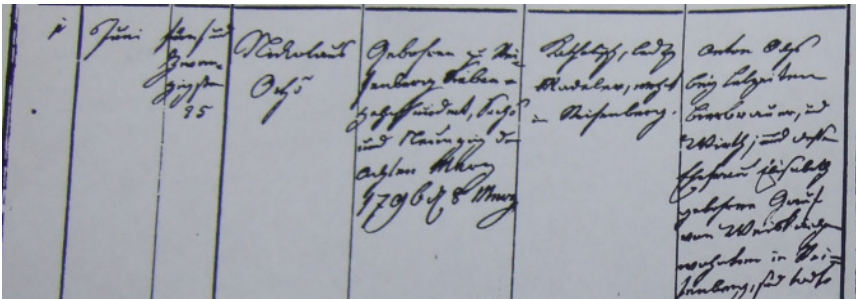 1 Juni fünf und
zwan-
zigsten
25
Nikolaus
Ochs
Gebohren zu Rei-
fenberg Sieben-
zehnhundert, Sechs
und Neunzig den
Achten Merz
1796 d 8 Merz
Katholisch, ledig
Nadeler, wohnt
in Reifenberg.
Anton Ochs
bey Lebzeiten
Bierbrauer, und
Wirth; und dessen
Ehefrau Elisabeth
gebohrne
von
wohnten in Rei-
fenberg, sind todt